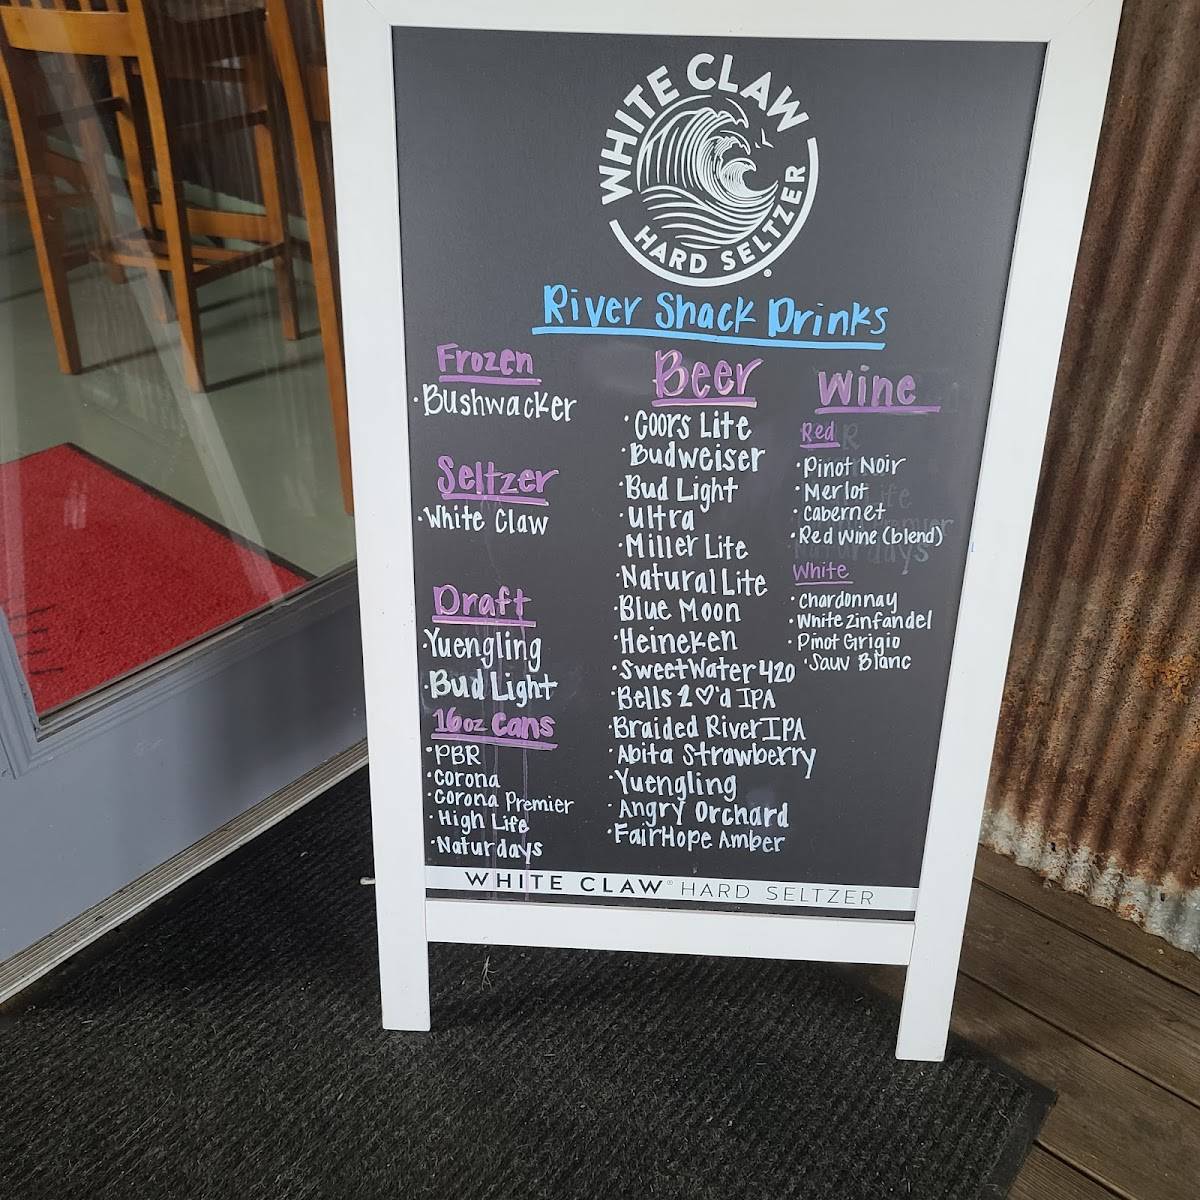 WHITE CLAW
HARD SELTZER®
River Shack Drinks
Frozen
·Bushwacker
Seltzer
·White Claw
Draft
·Yuengling
·Bud Light
16oz Cans
·PBR
·Corona
·Corona Premier
·High Life
·Naturdays
Beer
·Coors Lite
·Budweiser
·Bud Light
·Ultra
·Miller Lite
·Natural Lite
·Blue Moon
·Heineken
·SweetWater 420
·Bells 2 ♡'d IPA
·Braided River IPA
·Abita Strawberry
·Yuengling
·Angry Orchard
·FairHope Amber
Wine
Red
·Pinot Noir
·Merlot
·Cabernet
·Red Wine (blend)
White
·Chardonnay
·White Zinfandel
·Pinot Grigio
·Sauv Blanc
WHITE CLAW® HARD SELTZER